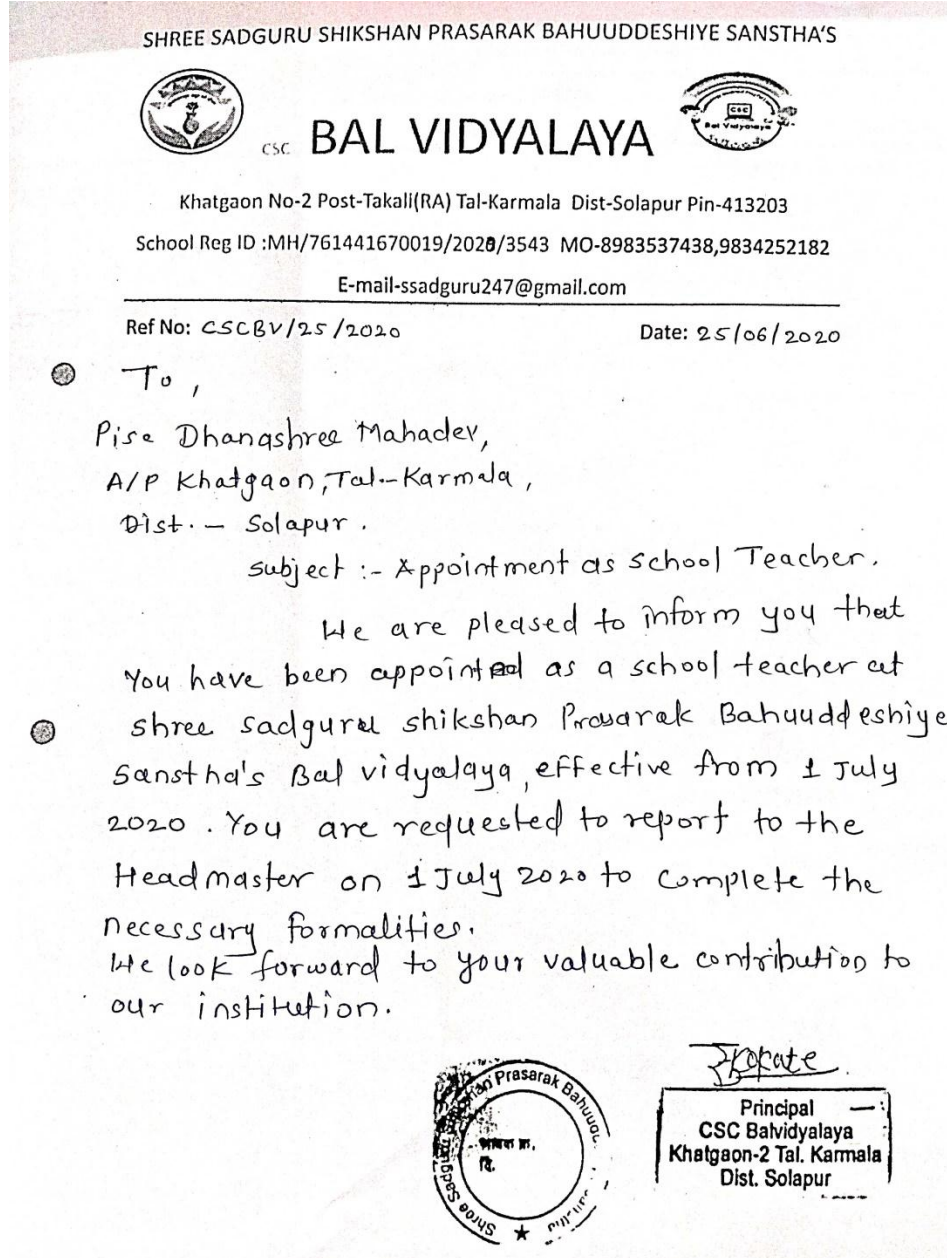 SHREE SADGURU SHIKSHAN PRASARAK BAHUUDDESHIYE SANSTHA'S
CSC BAL VIDYALAYA
CSC
Bal Vidyalaya
Khatgaon No-2 Post-Takali(RA) Tal-Karmala Dist-Solapur Pin-413203
School Reg ID :MH/761441670019/2020/3543 MO-8983537438,9834252182
E-mail-ssadguru247@gmail.com
Ref No: CSCBV/25/2020 Date: 25/06/2020
To,
Pise Dhanashree Mahadev,
A/P Khatgaon, Tal.-Karmala,
Dist. - Solapur.
Subject :- Appointment as school Teacher.
We are pleased to inform you that
You have been appointed as a school teacher at
shree sadguru shikshan Prasarak Bahuuddeshiye
Sanstha's Bal vidyalaya, effective from 1 July
2020. You are requested to report to the
Headmaster on 1 July 2020 to complete the
necessary formalities.
We look forward to your valuable contribution to
our institution.
Kokate
Prasarak
Shree
जावक क्र.
दि.
Principal
CSC Balvidyalaya
Khatgaon-2 Tal. Karmala
Dist. Solapur